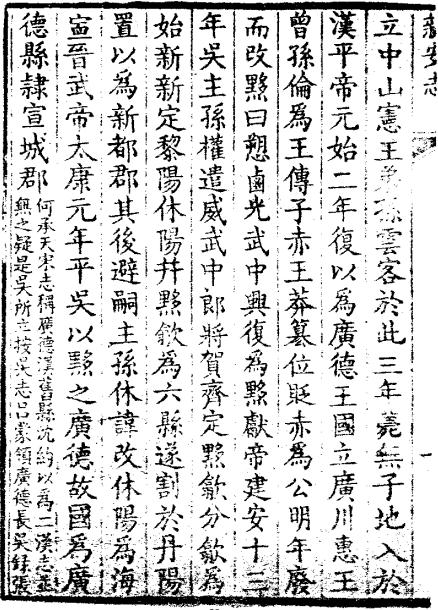 新安志
立中山憲王孫雲客於此三年薨無子地入於
漢平帝元始二年復以爲廣德王國立廣川惠王
曾孫倫爲王傳子赤王莽簒位貶赤爲公明年廢
而改黟曰愬鹵光武中興復爲黟獻帝建安十三
年吳主孫權遣威武中郎將賀齊定黟歙分歙爲
始新新定黎陽休陽并黟歙爲六縣遂割於丹陽
置以爲新都郡其後避嗣主孫休諱改休陽爲海
寍晉武帝太康元年平吳以黟之廣德故國爲廣
德縣隷宣城郡何承天宋志稱廣德漢舊縣沈約以爲二漢志並
無之疑是吳所立按吳志吕蒙領廣德長吳錄張